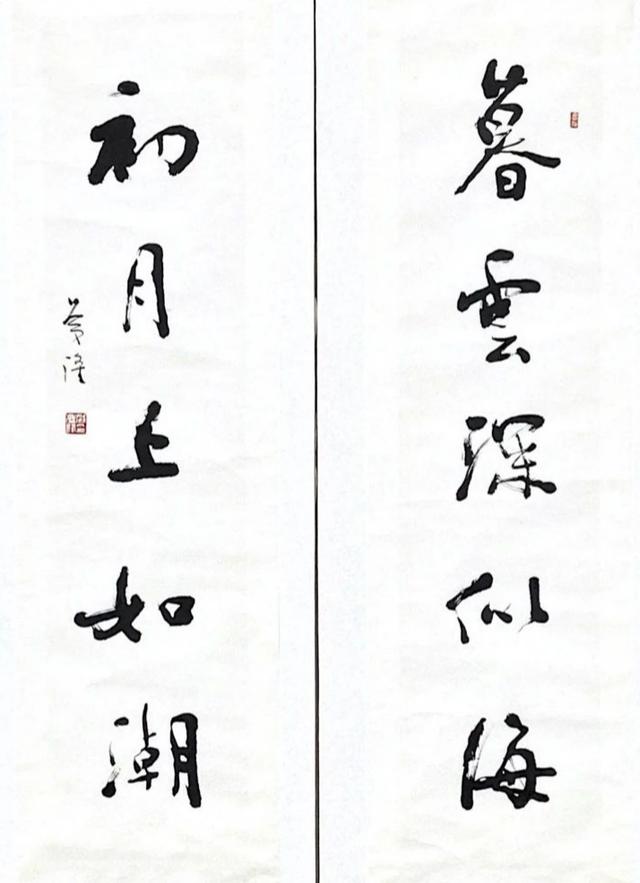 暮雲深似海
初月上如潮